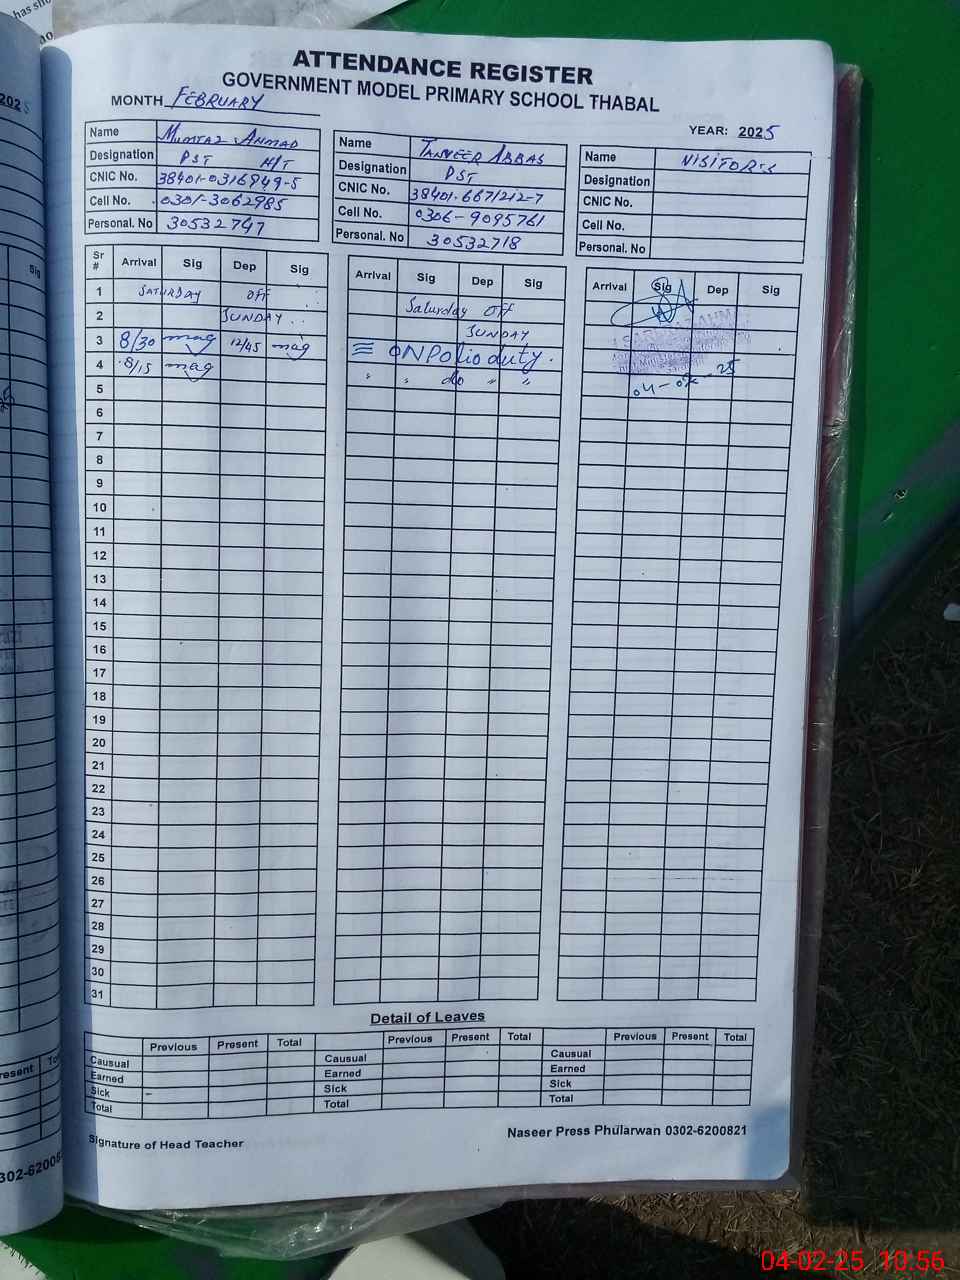 has sho
2025
Sig
ATTENDANCE REGISTER
GOVERNMENT MODEL PRIMARY SCHOOL THABAL
MONTH FEBRUARY
YEAR: 2025
Name MUMTAZ AHMAD
Designation PST H/T
CNIC No. 38401-0316949-5
Cell No. 0301-3062985
Personal. No 30532747
Name TANVEER ABBAS
Designation PST
CNIC No. 38401-6671212-7
Cell No. 0306-9095761
Personal. No 30532718
Name VISITOR'S
Designation
CNIC No.
Cell No.
Personal. No
Sr # Arrival Sig Dep Sig Arrival Sig Dep Sig Arrival Sig Dep Sig
1 SATURDAY OFF Saturday OFF
2 SUNDAY SUNDAY
3 8/30 mag 12/45 mag ON Polio duty.
4 8/15 mag " " do " " 04-02-25
5
6
7
8
9
10
11
12
13
14
15
16
17
18
19
20
21
22
23
24
25
26
27
28
29
30
31
Detail of Leaves
Previous Present Total Previous Present Total Previous Present Total
Causual Causual Causual
Earned Earned Earned
Sick – Sick Sick
Total Total Total
Signature of Head Teacher
Naseer Press Phularwan 0302-6200821
resent
302-6200
04-02-25 10:56